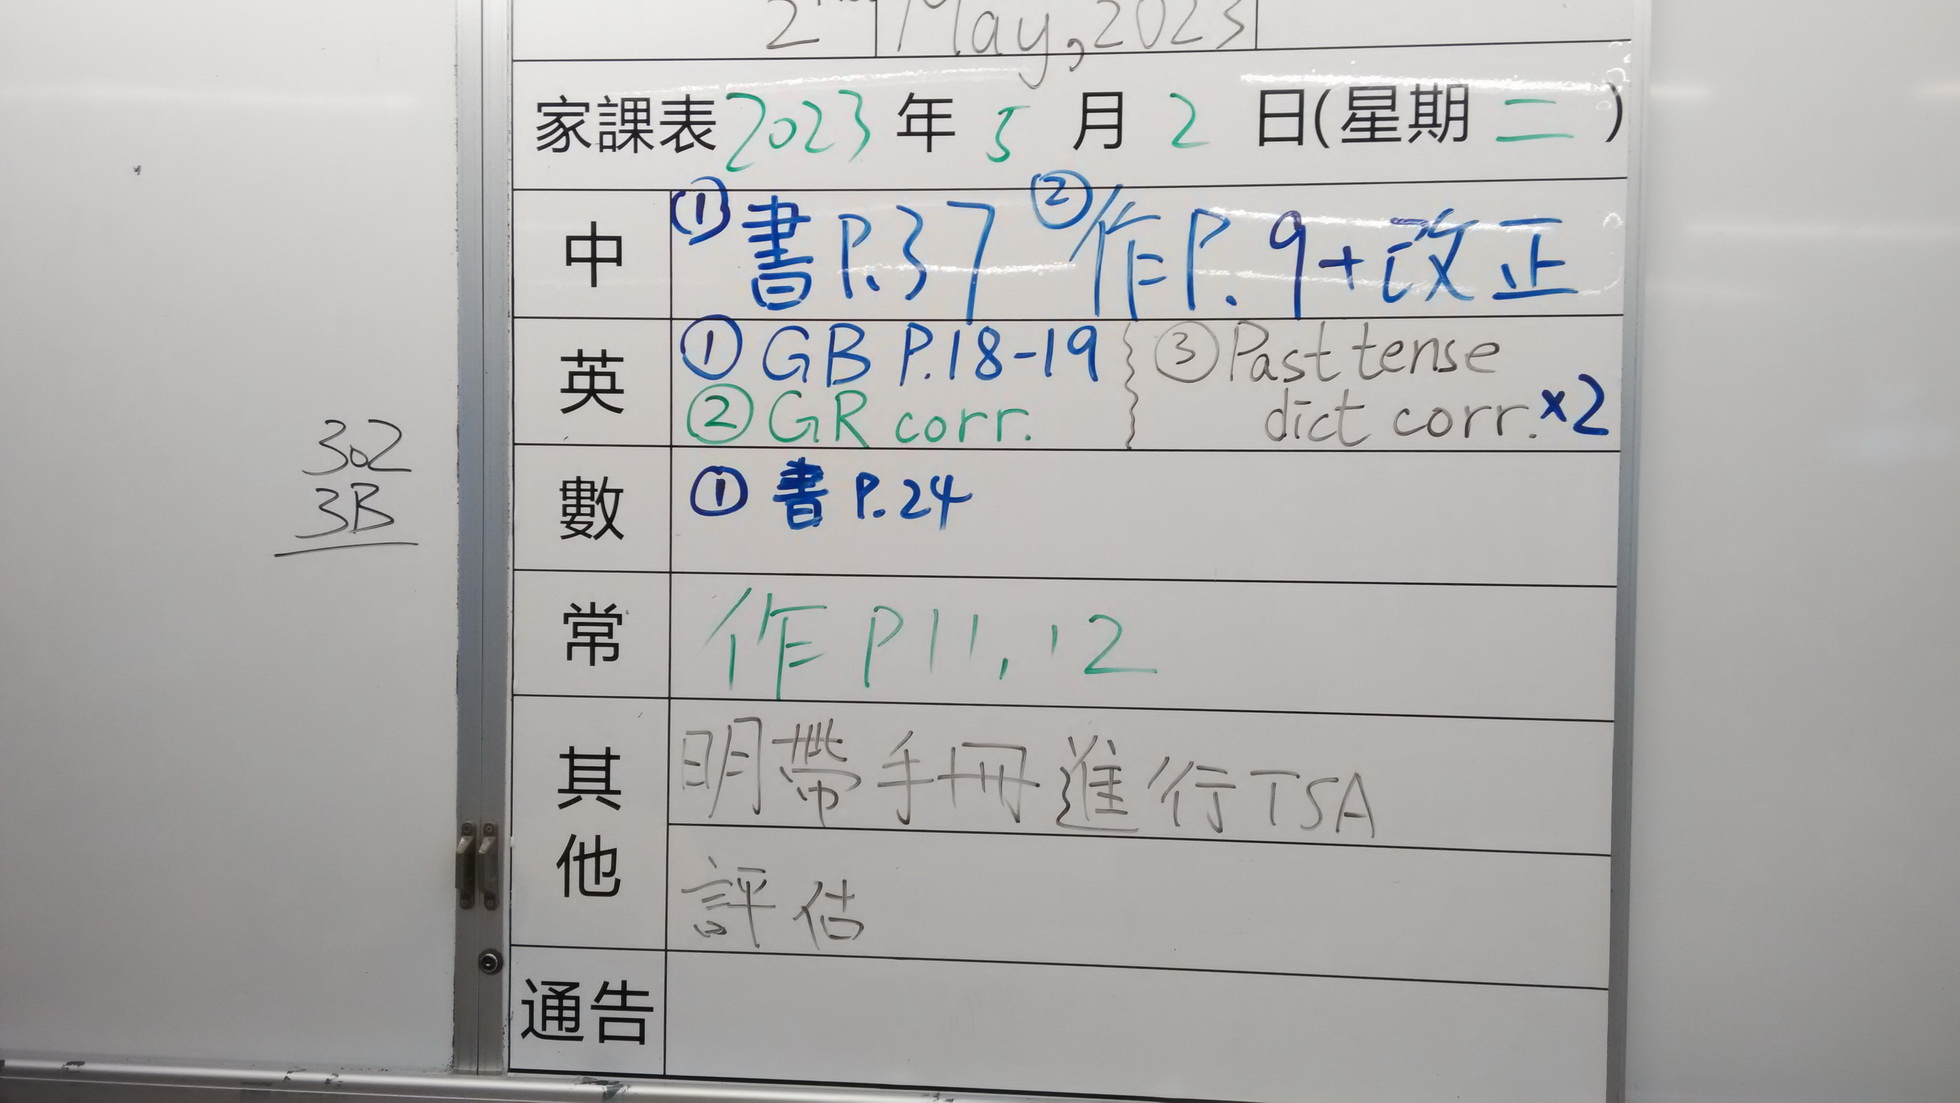 2nd May, 2023
家課表 2023 年 5 月 2 日(星期 二 )
中 ① 書 P.37 ② 作 P.9+改正
英 ① GB P.18-19 ③ Past tense
② GR corr. dict corr. ×2
數 ① 書 P.24
常 作 P11, 12
其他 明帶手冊進行TSA
評估
通告
302
3B